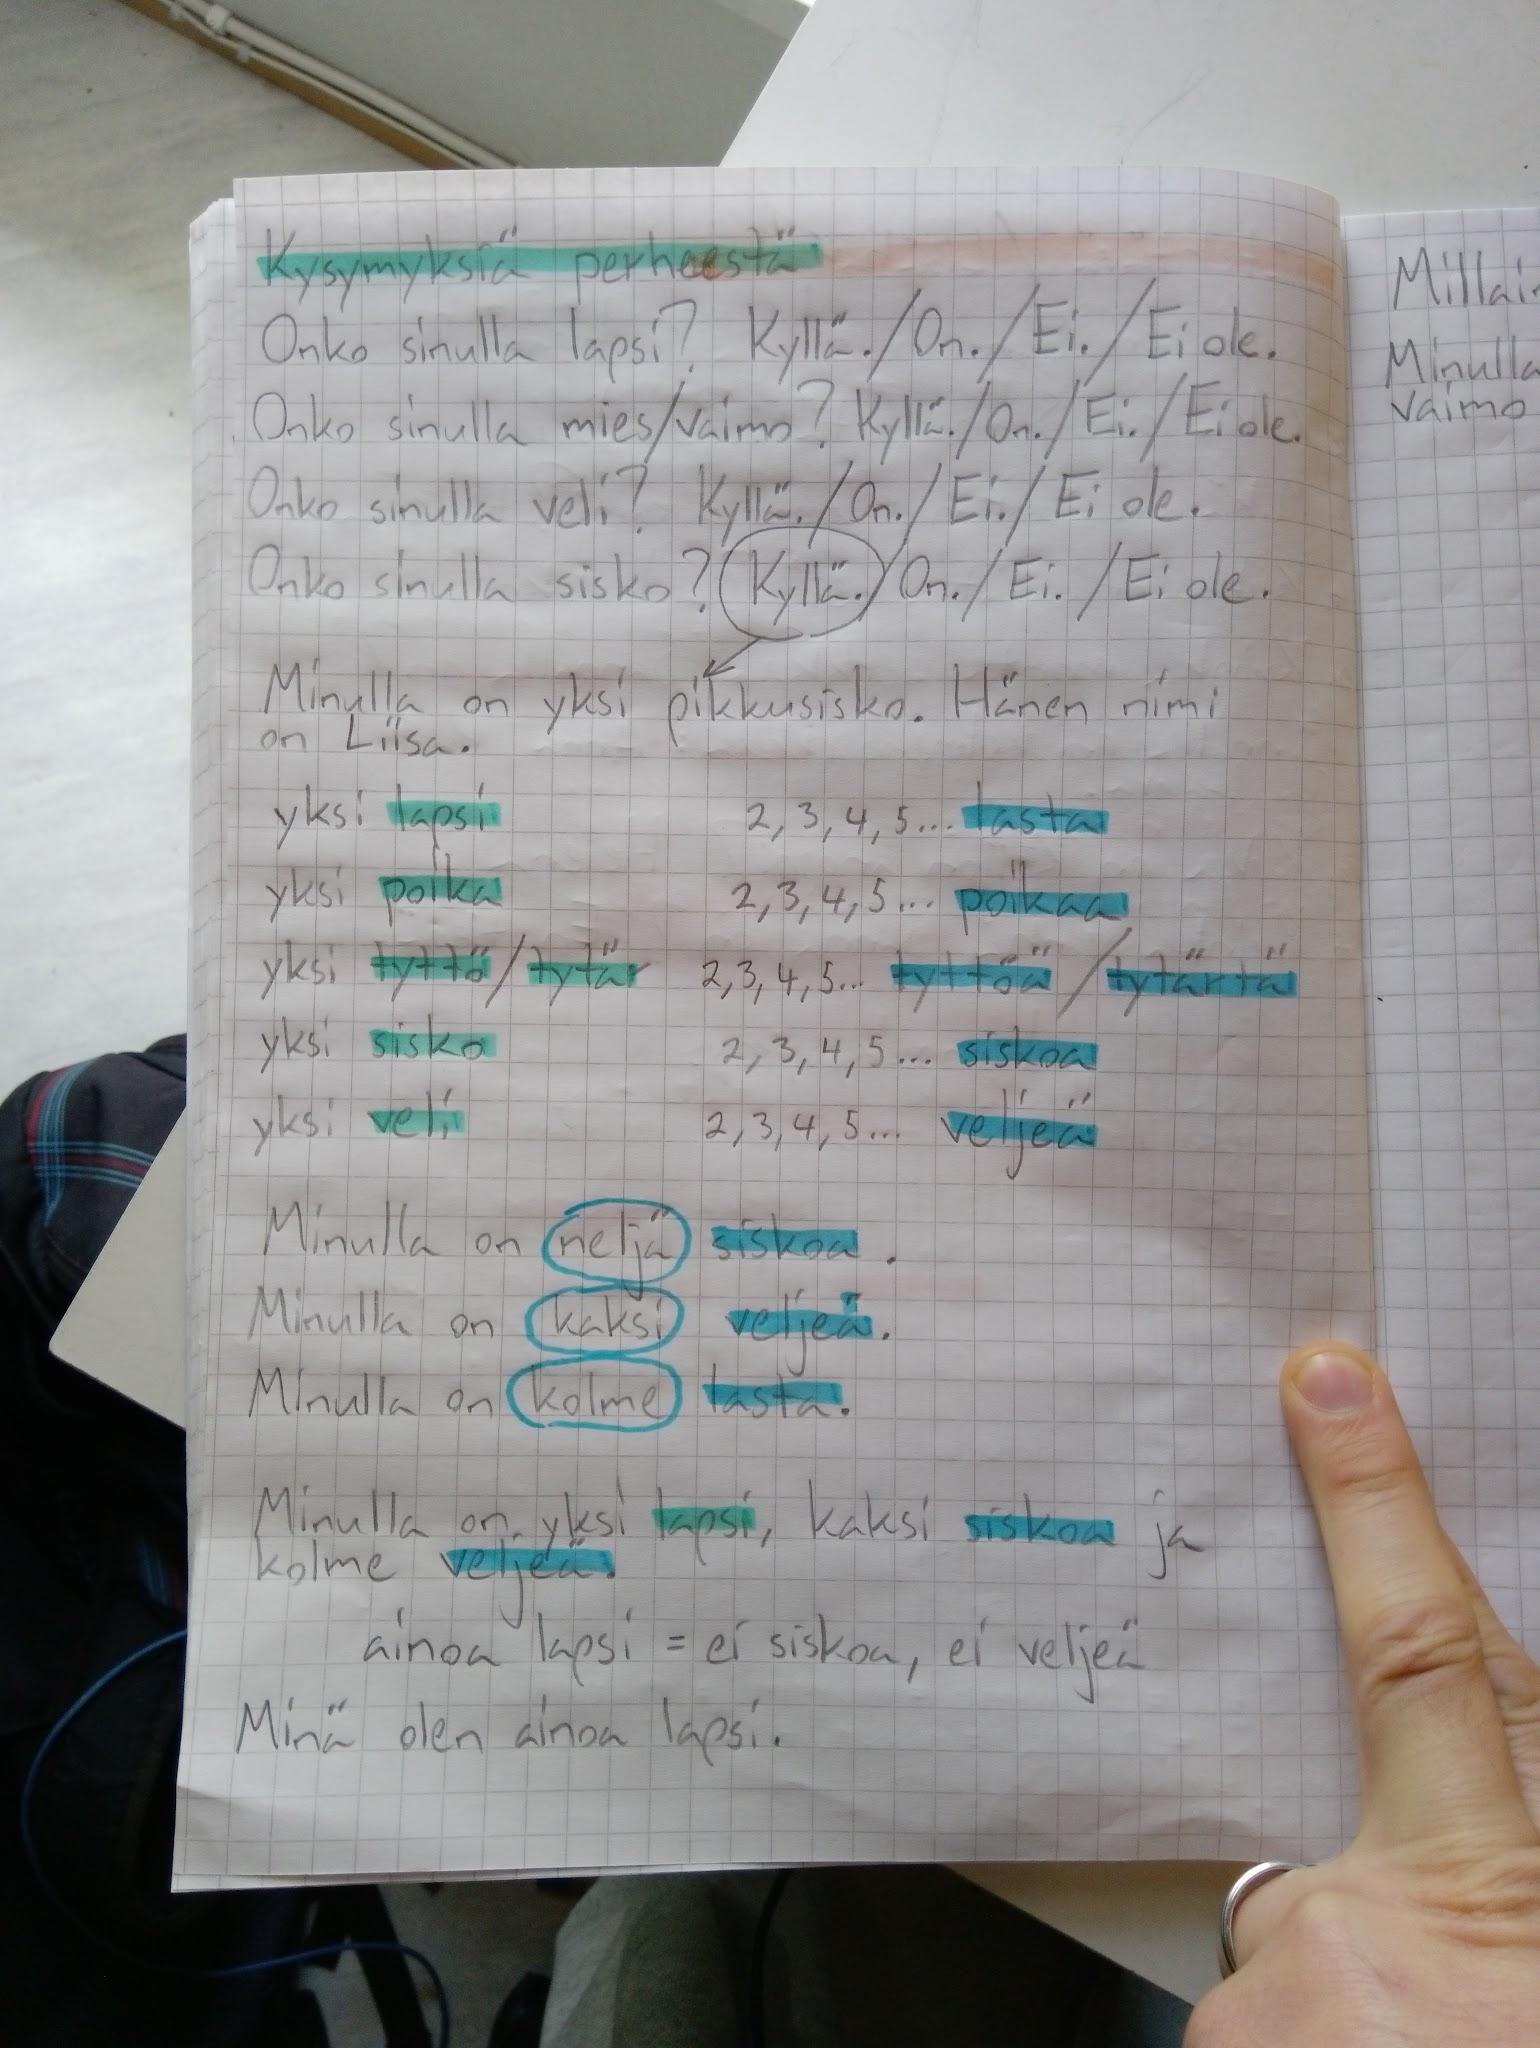 Kysymyksiä perheestä
Onko sinulla lapsi? Kyllä./On./Ei./Ei ole.
Onko sinulla mies/vaimo? Kyllä./On./Ei./Ei ole.
Onko sinulla veli? Kyllä./On./Ei./Ei ole.
Onko sinulla sisko? Kyllä./On./Ei./Ei ole.
Minulla on yksi pikkusisko. Hänen nimi
on Liisa.
yksi lapsi 2, 3, 4, 5... lasta
yksi poika 2, 3, 4, 5... poikaa
yksi tyttö/tytär 2, 3, 4, 5... tyttöä/tytärtä
yksi sisko 2, 3, 4, 5... siskoa
yksi veli 2, 3, 4, 5... veljeä
Minulla on neljä siskoa.
Minulla on kaksi veljeä.
Minulla on kolme lasta.
Minulla on yksi lapsi, kaksi siskoa ja
kolme veljeä.
ainoa lapsi = ei siskoa, ei veljeä
Minä olen ainoa lapsi.
Minulla
vaimo